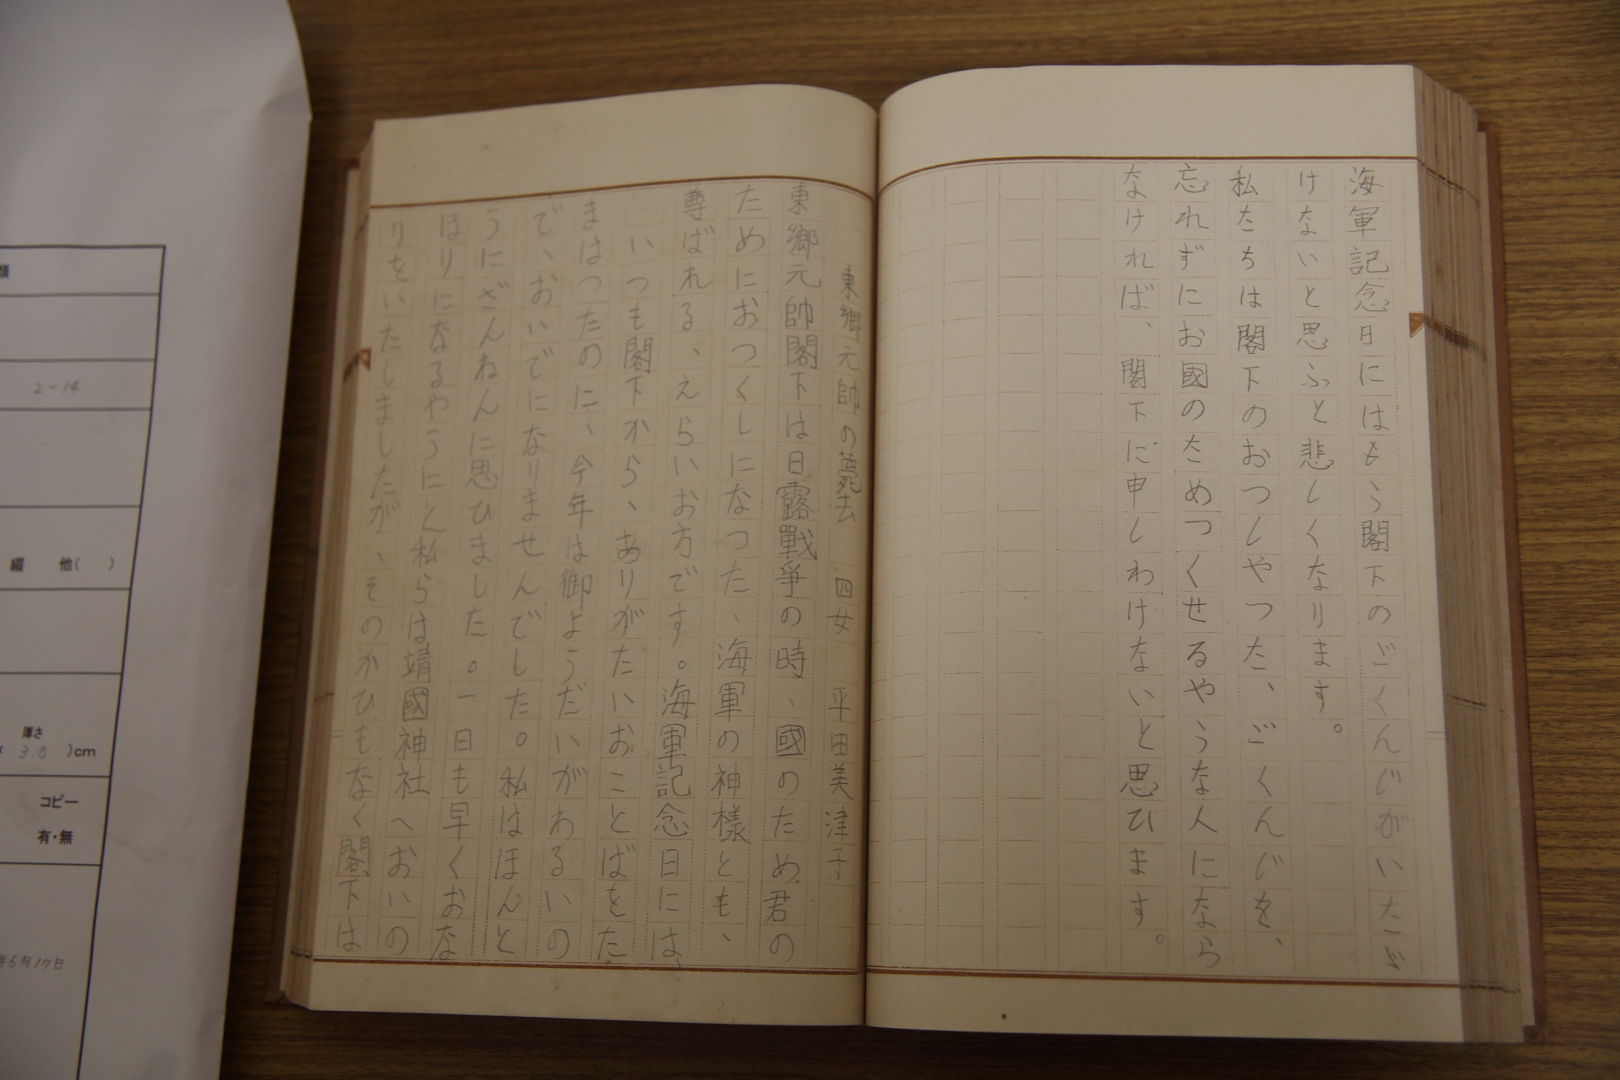 海軍記念日にはもう閣下のごくんじがいたゞ
けないと思ふと悲しくなります。
私たちは閣下のおつしやつた、ごくんじを、
忘れずにお國のためつくせるやうな人になら
なければ、閣下に申しわけないと思ひます。
東郷元帥の薨去 四女 平田美津子
東郷元帥閣下は日露戰爭の時、國のため君の
ためにおつくしになつた、海軍の神様とも、
尊ばれる、えらいお方です。海軍記念日には、
いつも閣下から、ありがたいおことばをた
まはつたのに、今年は御ようだいがわるいの
で、おいでになりませんでした。私はほんと
うにざんねんに思ひました。一日も早くおな
ほりになるやうにと私らは靖國神社へおいの
りをいたしましたが、そのかひもなく閣下は
類
2-14
綴 他( )
厚さ
3.0 )cm
コピー
有・無
年6月17日